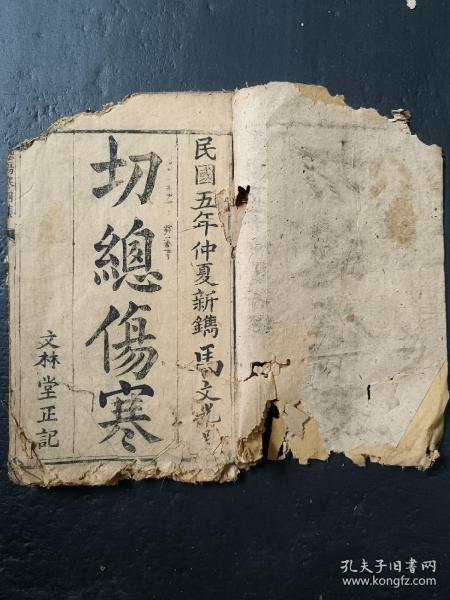 民國五年仲夏新鐫
馬文
切總傷寒
文林堂正記
孔夫子旧书网
www.kongfz.com